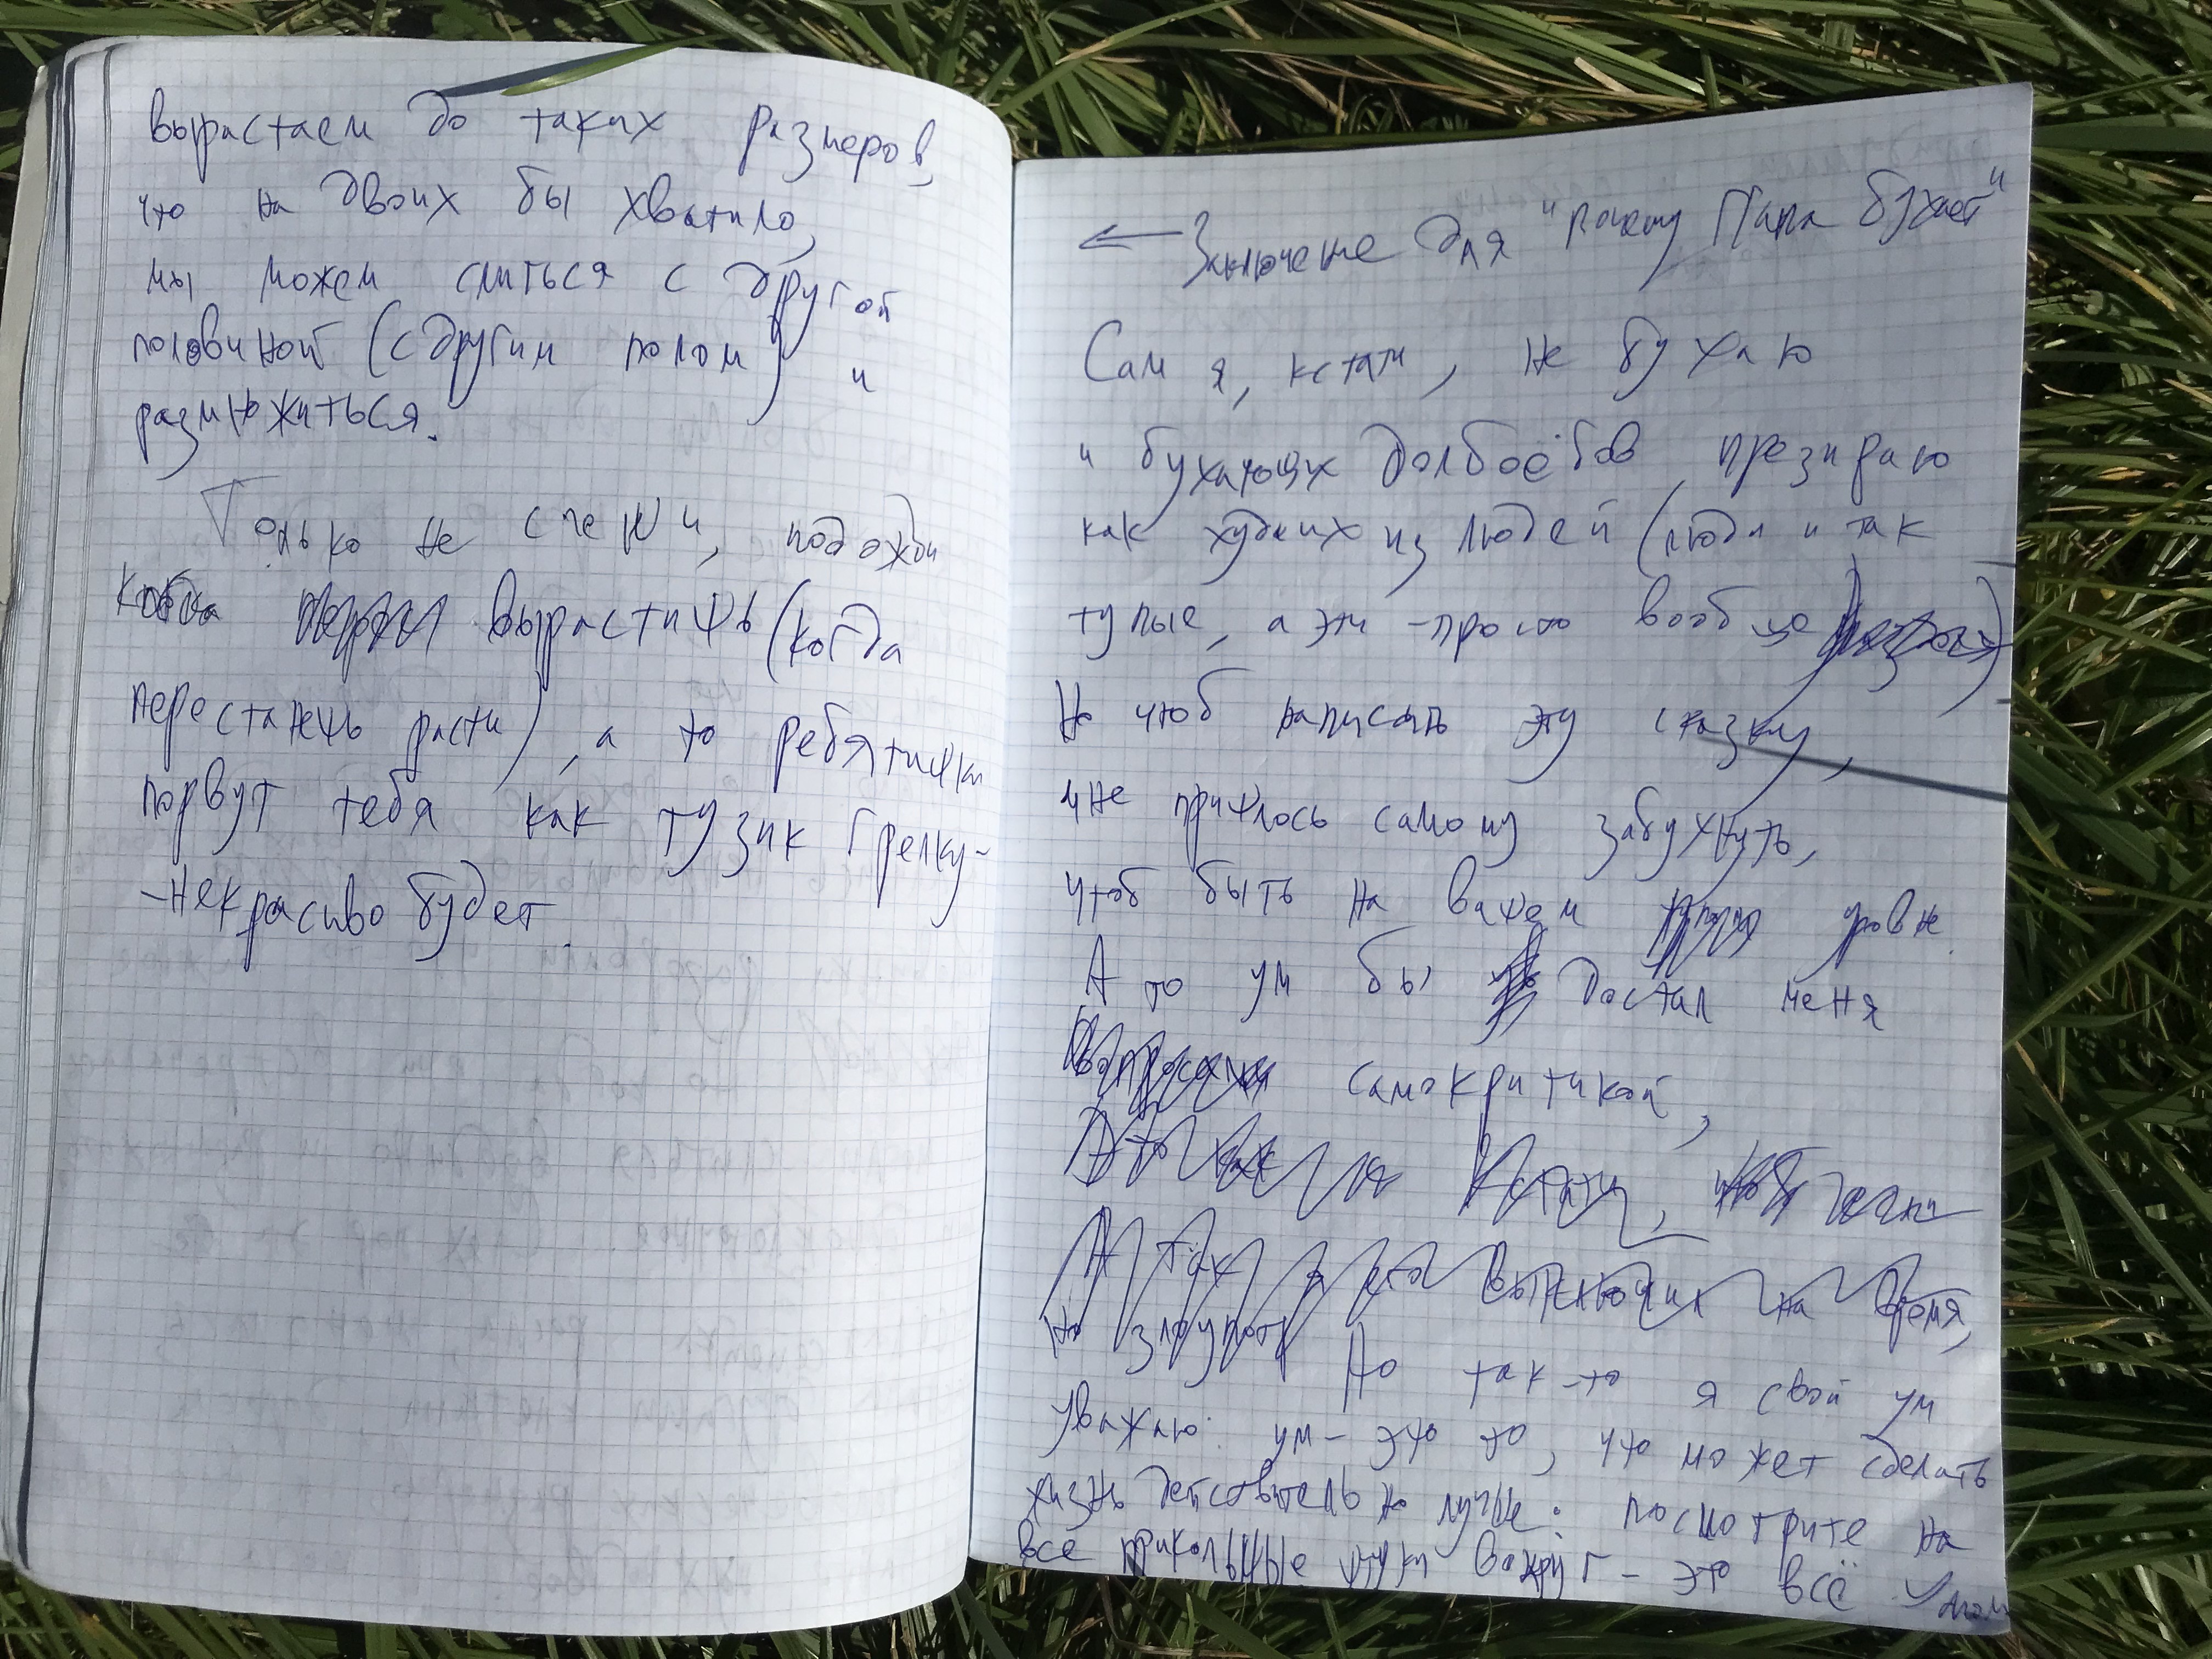 вырастаем до таких размеров,
что на двоих бы хватило
мы можем слиться с другой
половиной (с другим полом и
размножиться.
Только не спеши, подожди
когда вырастишь (когда
перестанешь расти), а то ребятишки
порвут тебя как тузик грелку -
- Некрасиво будет.
← Значение для "почему Пира бухает"
Сам я, кстати, не бухаю
и бухающих долбоёбов презираю
как худших из людей (люди и так
тупые, а эти - просто вообще
Но чтоб написать эту сказку,
мне пришлось самому забухнуть,
чтоб быть на вашем уровне.
А то ум бы достал меня
самокритикой,
Но так-то я свой ум
уважаю: ум - это то, что может сделать
жизнь действительно лучше: посмотрите на
все прикольные штуки вокруг - это всё умом